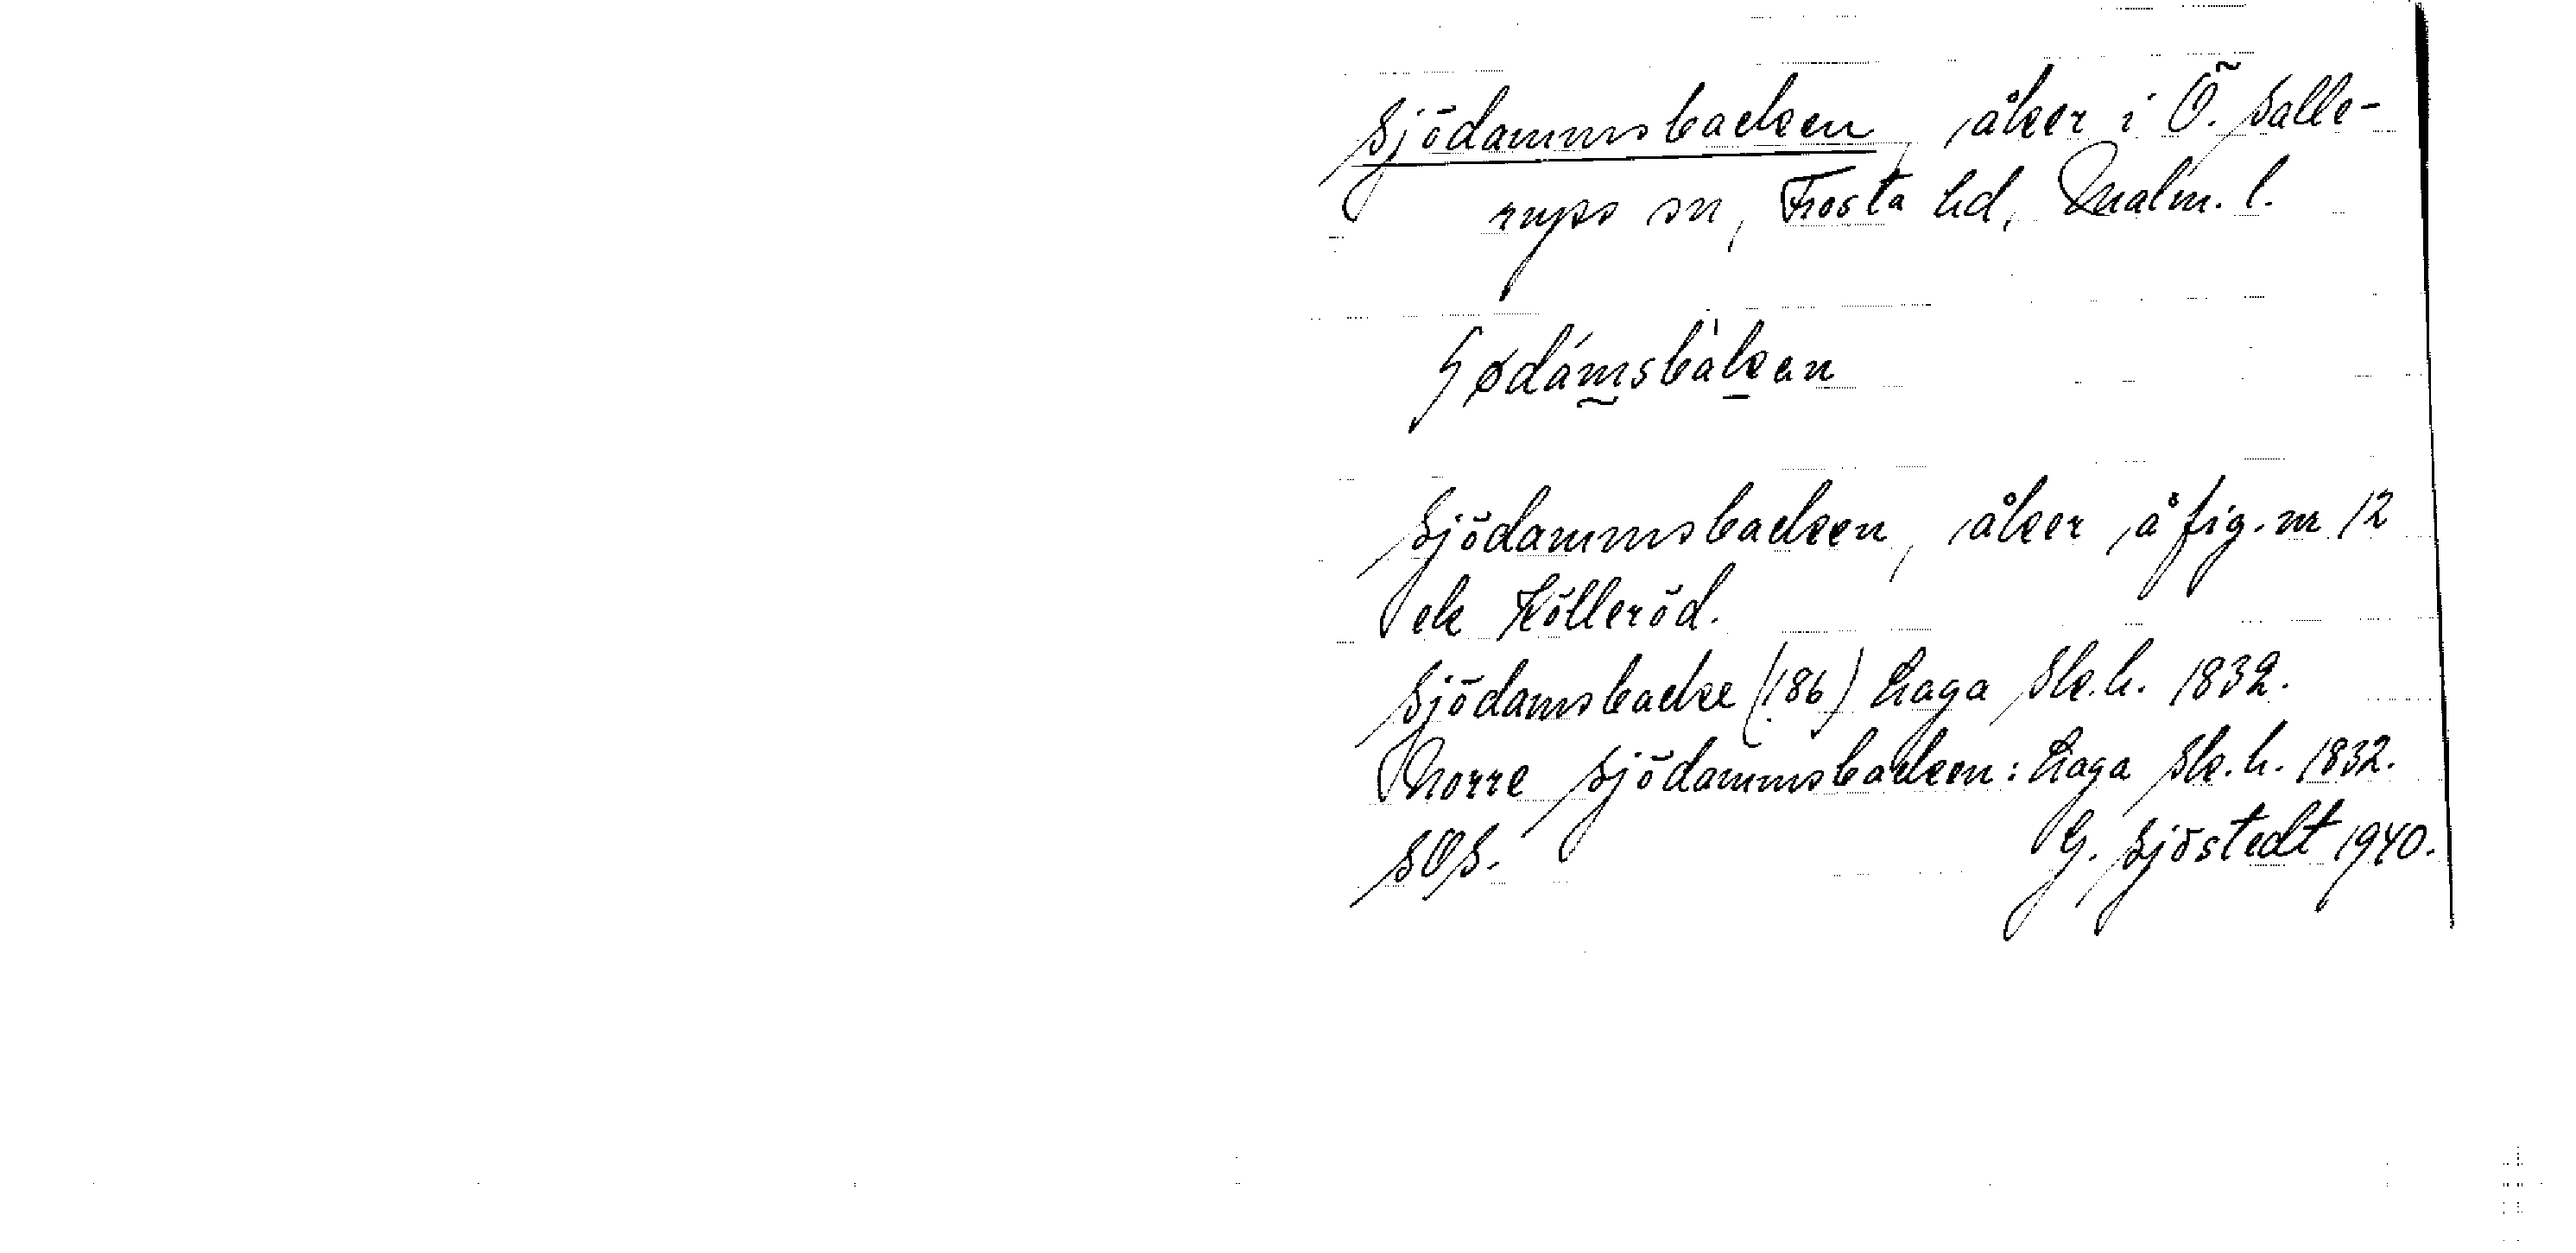 Sjödammsbacken, åker i Ö. Salle-
rups sn, Frosta hd, Malm. l.
Sjödammsbacken, åker å fig. nr 12
ek Kölleröd.
Sjödamsbacke (186) Laga Sk.h. 1832.
Norre Sjödammsbacken: Laga Sk.h. 1832.
SOS. G. Sjöstedt 1940.